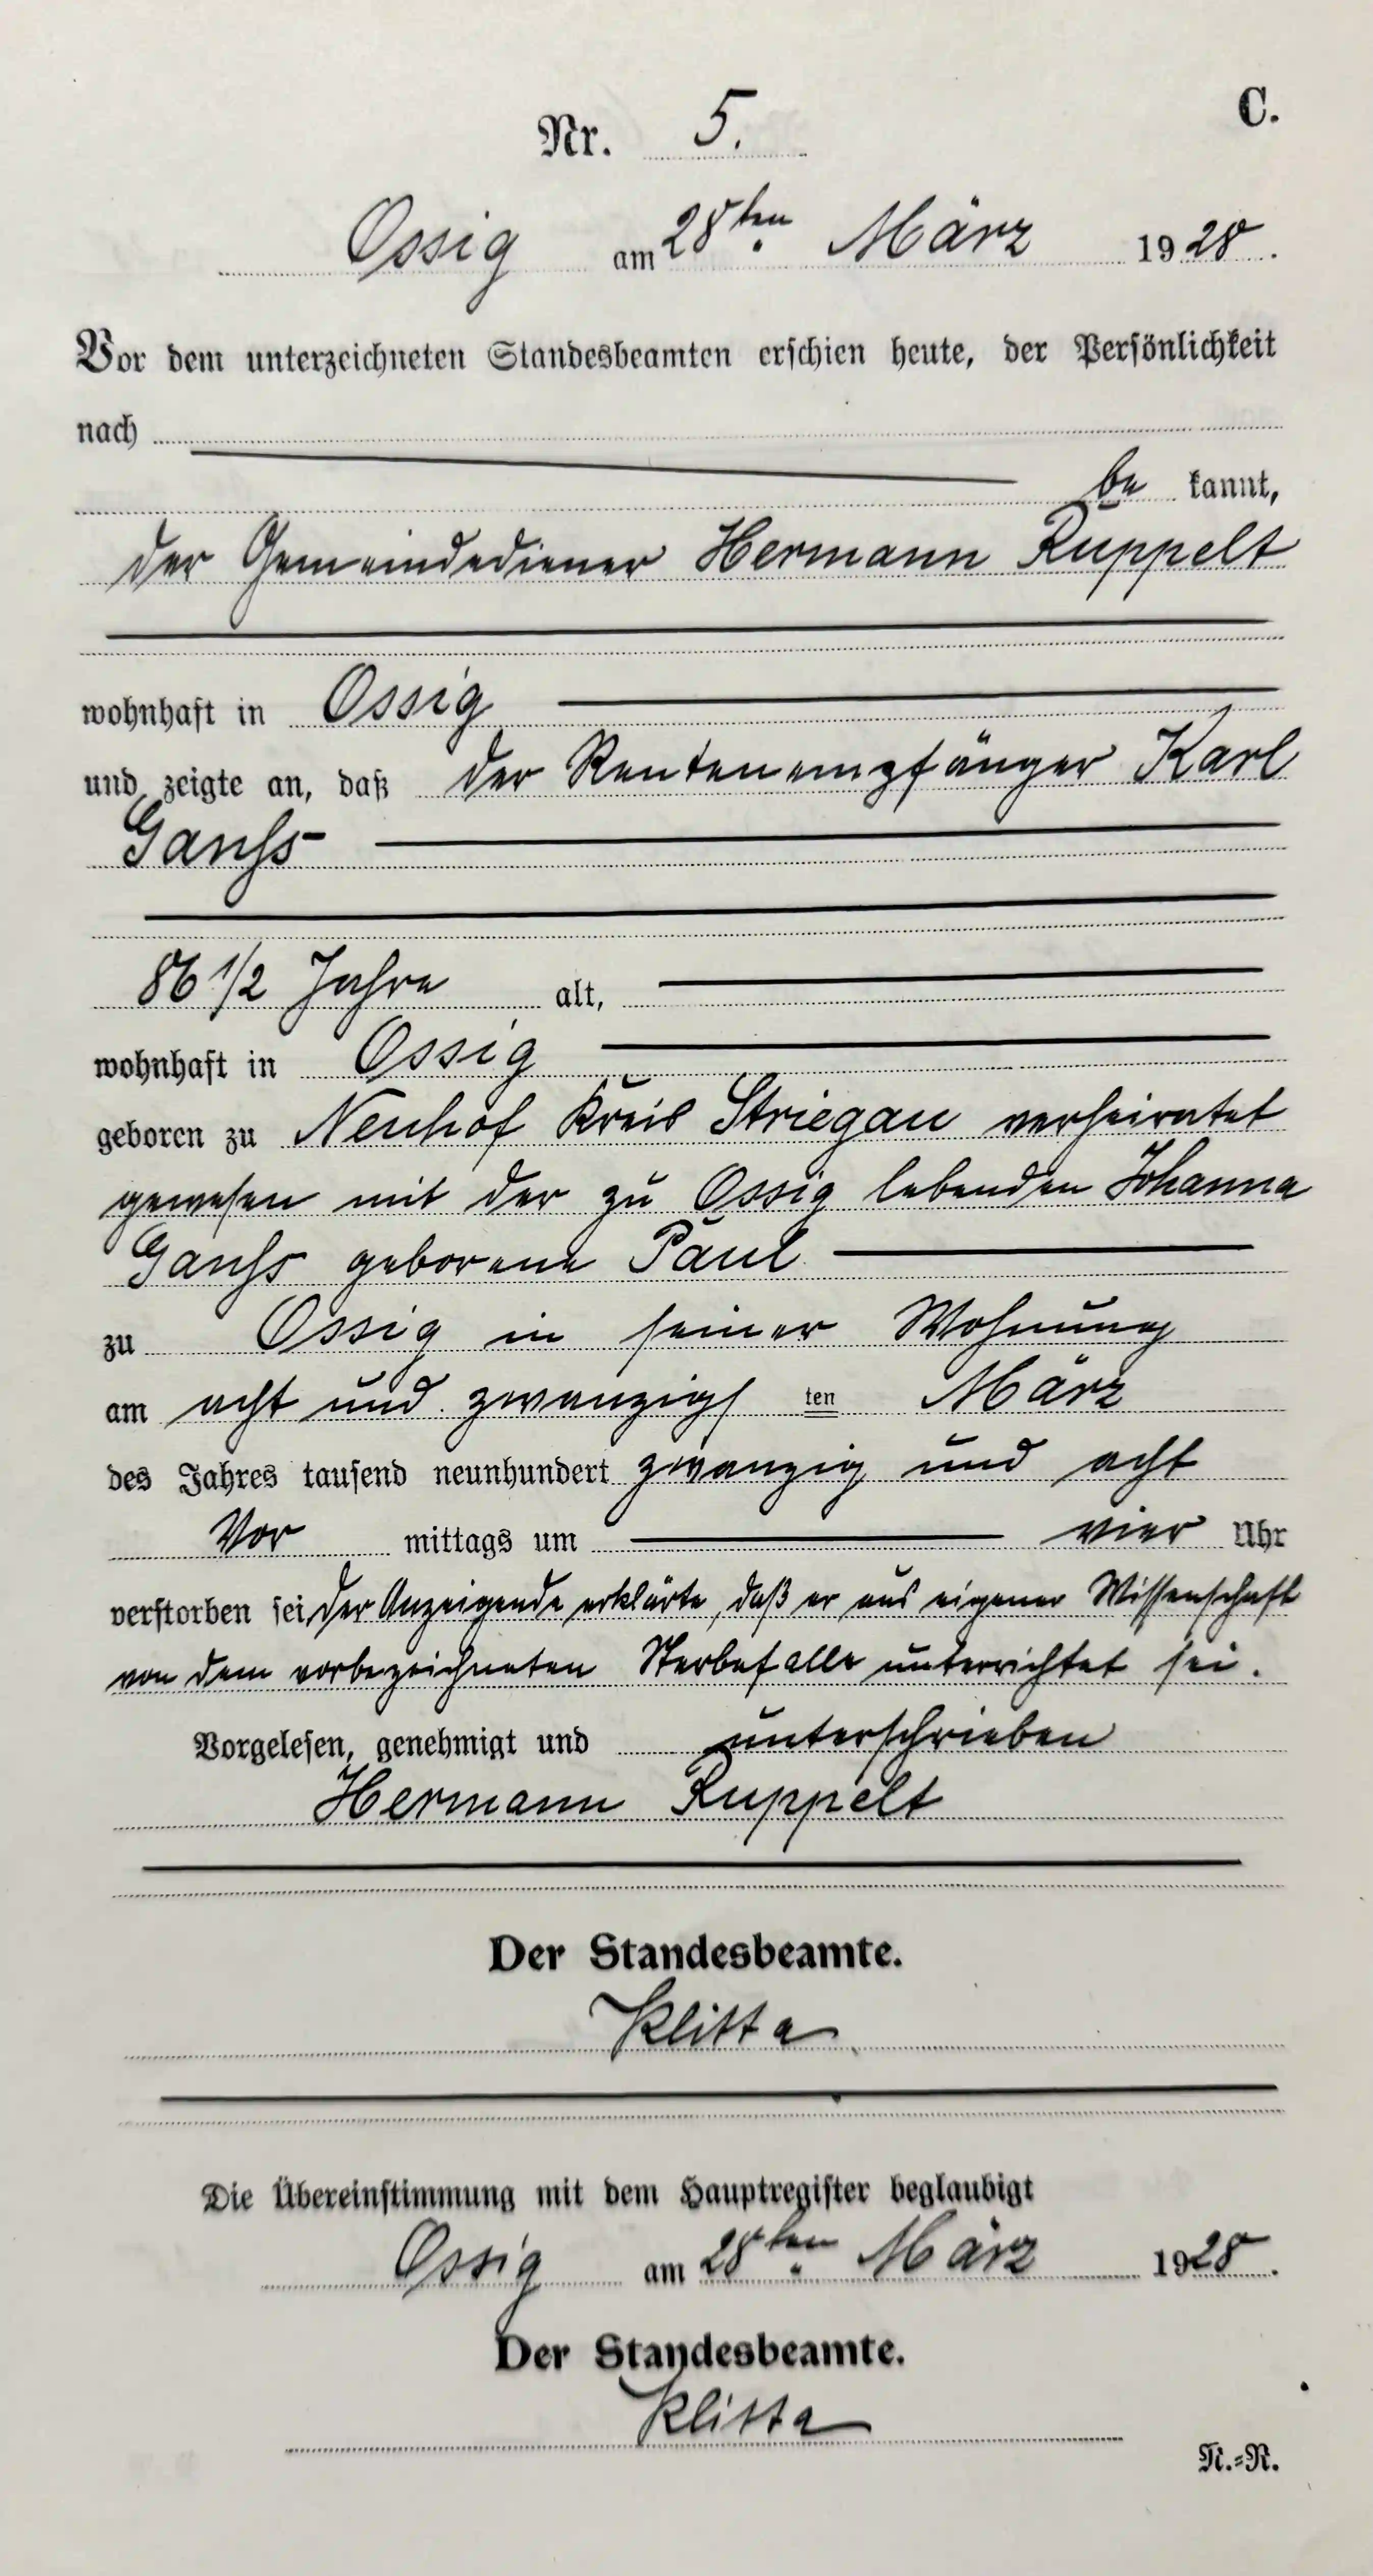 C.
Nr. 5.
Ossig am 28ten März 1928.
Vor dem unterzeichneten Standesbeamten erschien heute, der Persönlichkeit
nach
be kannt,
der Gemeindediener Hermann Ruppelt
wohnhaft in Ossig
und zeigte an, daß der Rentenempfänger Karl
Ganss
86 1/2 Jahre alt,
wohnhaft in Ossig
geboren zu Neuhof Kreis Striegau verheiratet
gewesen mit der zu Ossig lebenden Johanna
Ganss geborene Paul
zu Ossig in seiner Wohnung
am acht und zwanzigs ten März
des Jahres tausend neunhundert zwanzig und acht
Vor mittags um vier Uhr
verstorben sei, der Anzeigende erklärte, daß er aus eigener Wissenschaft
von dem vorbezeichneten Sterbefalle unterrichtet sei.
Vorgelesen, genehmigt und unterschrieben
Hermann Ruppelt
Der Standesbeamte.
Klitta
Die Übereinstimmung mit dem Hauptregister beglaubigt
Ossig am 28ten März 1928.
Der Standesbeamte.
Klitta
N.=R.